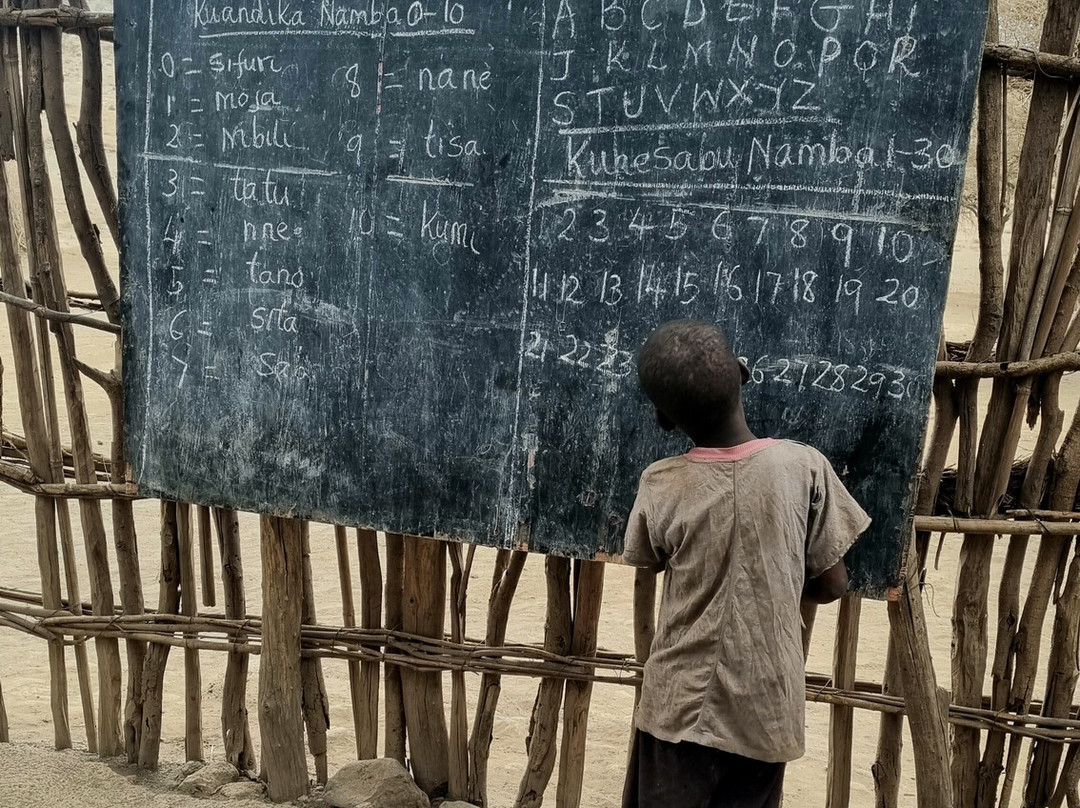 Kuandika Namba 0-10
0 = sifuri
1 = moja
2 = mbili
3 = tatu
4 = nne
5 = tano
6 = sita
7 = saba
8 = nane
9 = tisa
10 = kumi
A B C D E F G H I
J K L M N O P Q R
S T U V W X Y Z
Kuhesabu Namba 1-30
2 3 4 5 6 7 8 9 10
11 12 13 14 15 16 17 18 19 20
21 22 23 26 27 28 29 30